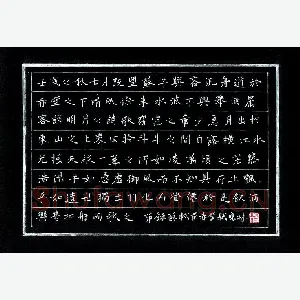 壬戌之秋七月既望蘇子與客泛舟遊於
赤壁之下清風徐來水波不興舉酒屬
客誦明月之詩歌窈窕之章少焉月出於
東山之上徘徊於斗牛之間白露橫江水
光接天縱一葦之所如凌萬頃之茫然
浩浩乎如馮虛御風而不知其所止飄
乎如遺世獨立羽化而登仙於是飲酒
樂甚扣舷而歌之 節錄蘇